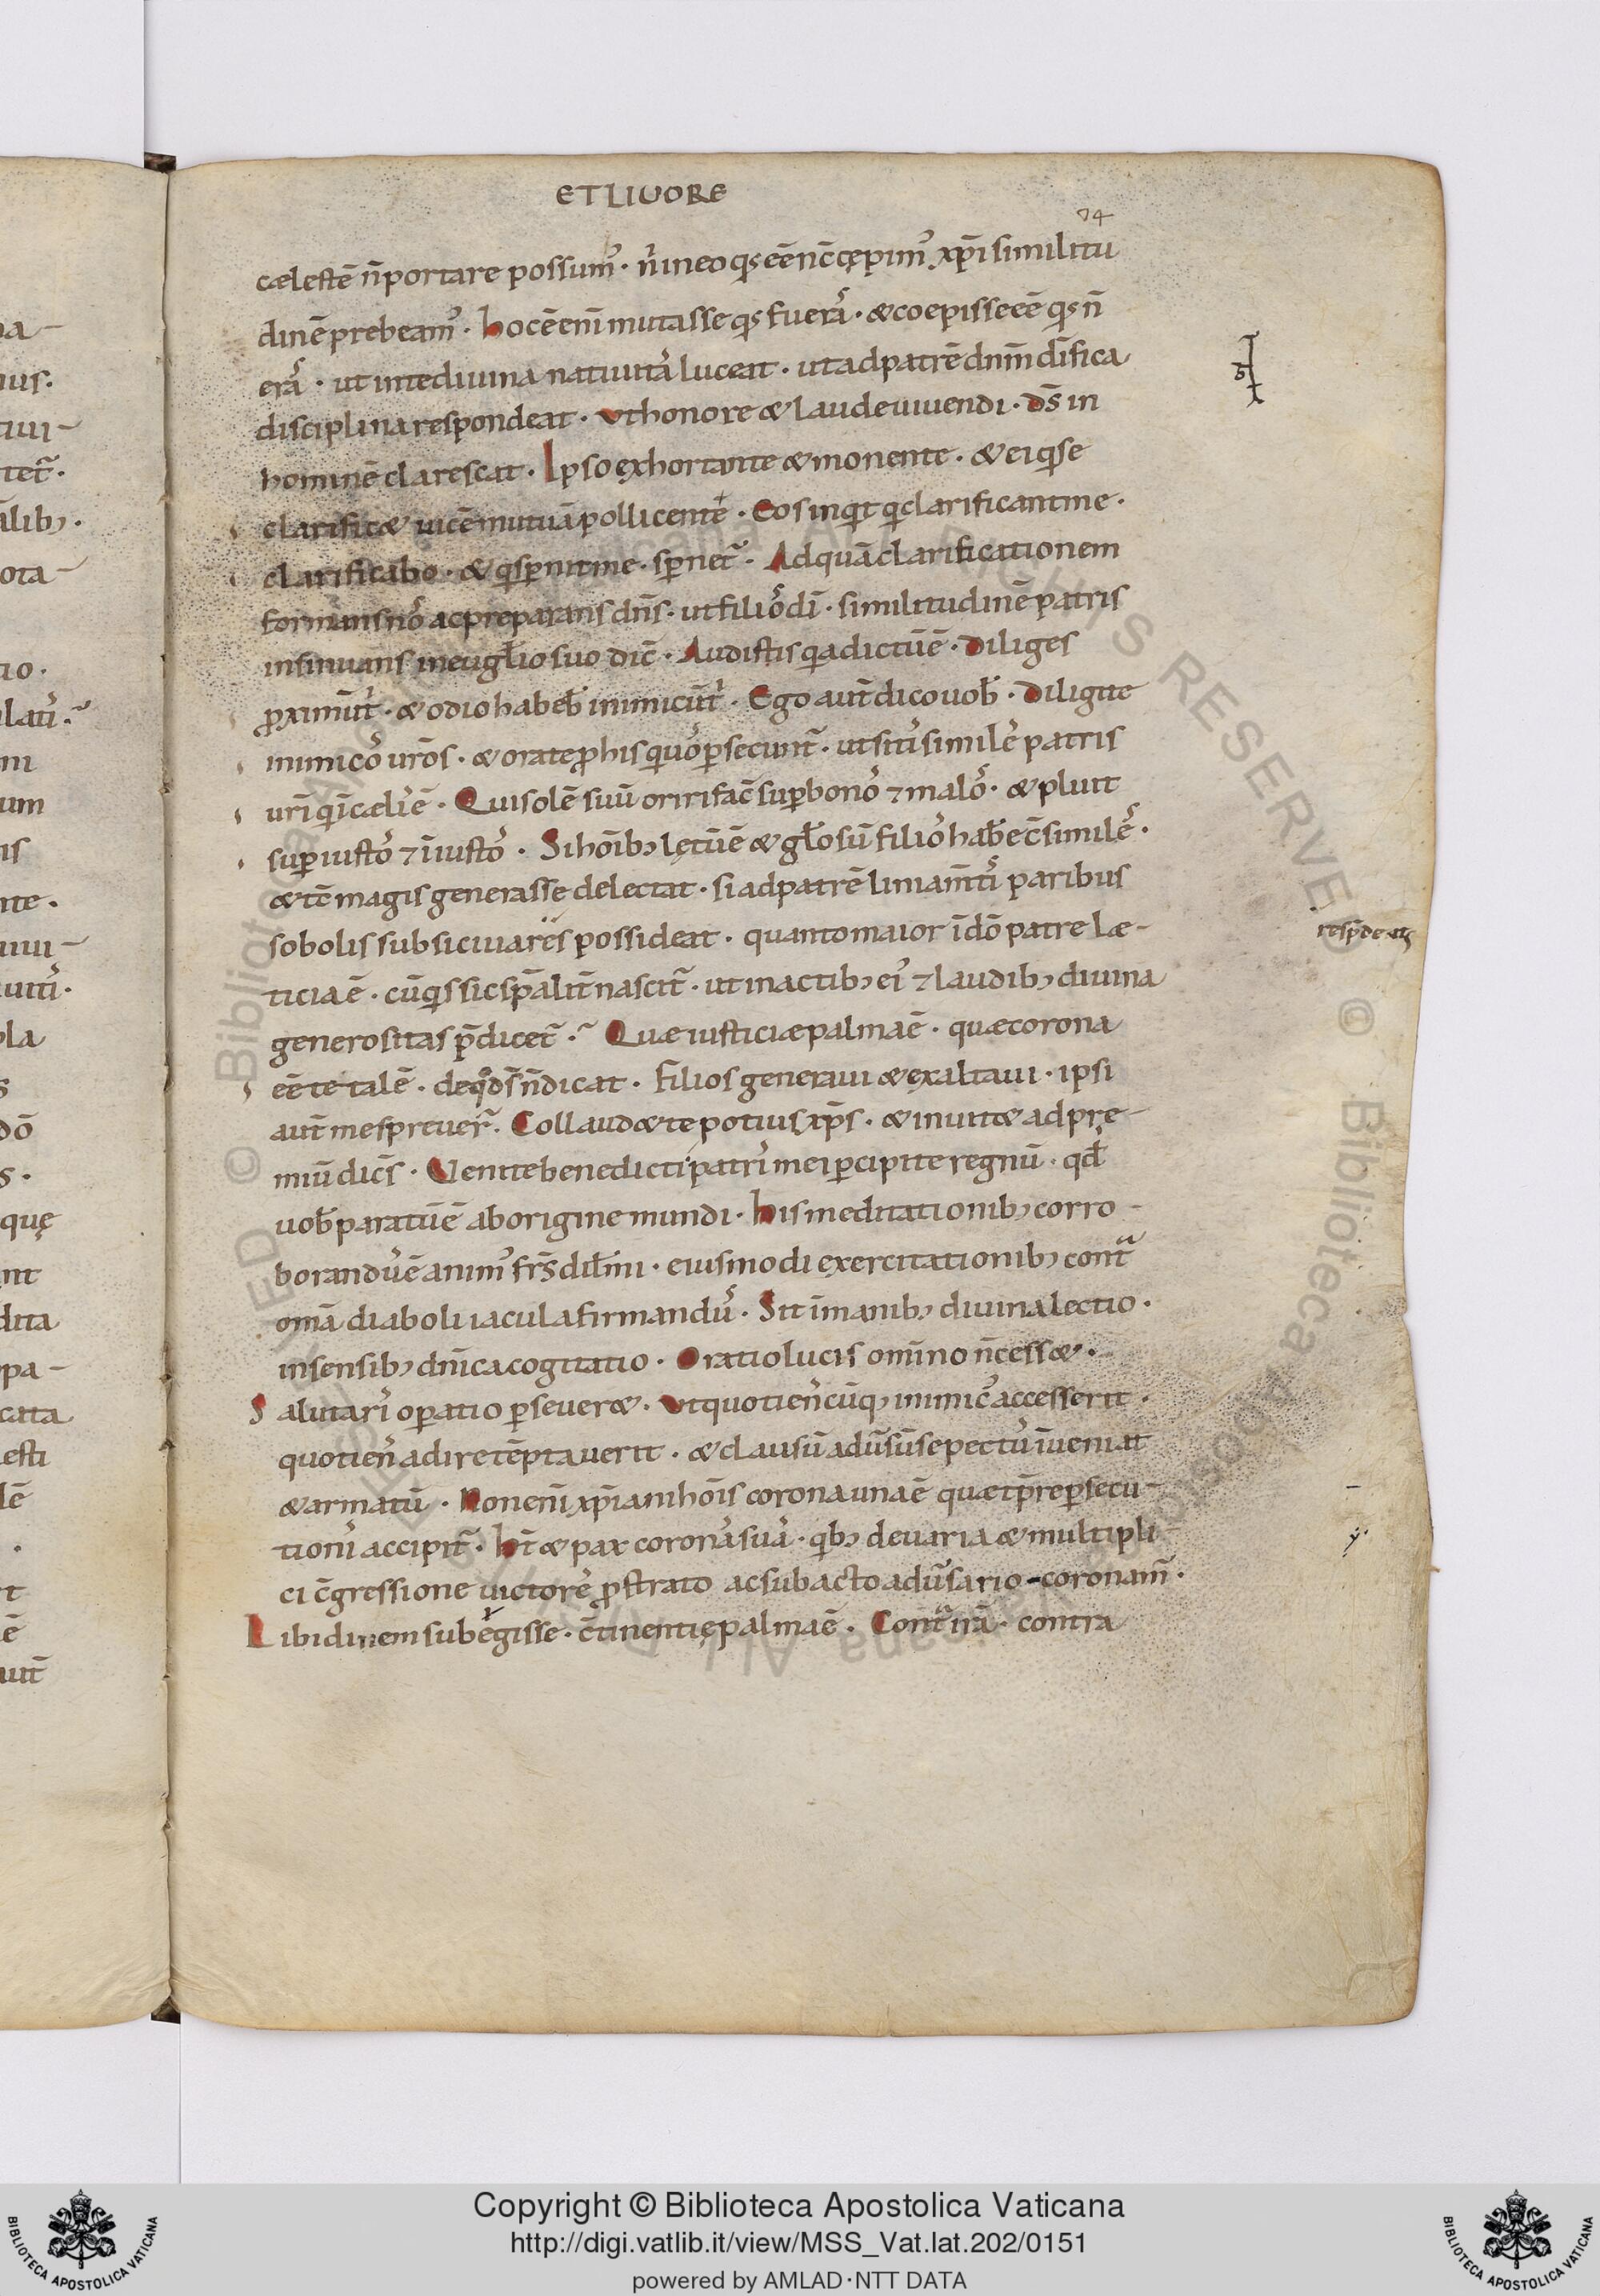 ET LIVORE
74
cælestē n̄ portare possum᾽ · n̄ in eo qđ eē nc̄ cępim᾽ xp̄i similitu
dinē prebeam᾽ · hoc ē eni mutasse qđ fuerā᾽ · & coepisse eē qđ n̄
erā᾽ · ut in te divina nativitā᾽ luceat · ut ad patrē dnm̄ dīfica
disciplina respondeat · Ut honore & laude vivendi · ds̄ in
hominē clarescat · Ipso exhortante & monente · & ei qi se
clarific& vicē mutuā pollicente · Eos inqt qi clarificant me ·
clarificabo · & qi spernit me · spernet᾽ · Ad quā clarificationem
formans nō᾽ ac preparans dns̄ · ut filiō᾽ dī · similitudinē patris
insinuans in euglio suo dic̄ · Audistis qia dictū ē · Diliges
proximū t᾽ · & odio habeb᾽ inimicū t᾽ · Ego aut̄ dico vob᾽ · Diligite
inimicō᾽ vrōs · & orate pro his qi vō᾽ persecunt᾽ · ut sitī᾽ similē᾽ patris
vri qi ī cæli᾽ ē · Qui solē suū oriri fac̄ super bonō᾽ ⁊ malō᾽ · & pluit
super iustō᾽ ⁊ īiustō᾽ · Si hōibꝫ lętū ē & glosū filiō᾽ habē c̄similē᾽ ·
& tc̄ magis generasse delectat · si ad patrē liniam̄t᾽ paribus
sobolis subsiciva rēs possideat · quanto maior ī dō patre læ-
ticia ē · cū qis sic sp̄alit̄ nascit᾽ · ut in actibꝫ ei᾽ ⁊ laudibꝫ divina
generositas p̄dicet᾽ · Quæ iusticiæ palma ē · quæ corona
eē te talē · de qo ds̄ n̄ dicat · Filios generavi & exaltavi · ipsi
aut̄ me spreuer᾽ · Collaud& te potius xp̄s · & invit& ad prę-
miū dic̄s · Venite benedicti patri᾽ mei percipite regnū · qđ
vob᾽ paratū ē ab origine mundi · his meditationibꝫ corro-
borandu᾽ ē anim᾽ fr̄s dil̄mi · eiusmodi exercitationibꝫ cont᾽
omā diaboli iacula firmandu᾽ · Sit ī manibꝫ divina lectio ·
in sensibꝫ dnīca cogitatio · Oratio lucis omīno n̄ cess& ·
Salutari᾽ operatio persever& · Ut quotien᾽cūqꝫ inimic᾽ accesserit ·
quotien᾽ adire tēptaverit · & clausū adūsū se pectu᾽ īveniat
& armatū · Non eni xp̄iani hōis corona una ē quæ t̄pre persecu-
tioni᾽ accipit᾽ · ht̄ & pax corona᾽ sua᾽ · qibꝫ de varia & multipli-
ci c̄gressione victorē᾽ prostrato ac subacto adūsario coronam᾽ ·
Libidinem subegisse · c̄tinentię palma ē · Cont᾽ irā · contra
respōdeat
Copyright © Biblioteca Apostolica Vaticana
http://digi.vatlib.it/view/MSS_Vat.lat.202/0151
powered by AMLAD·NTT DATA
BIBLIOTECA APOSTOLICA VATICANA
BIBLIOTECA APOSTOLICA VATICANA